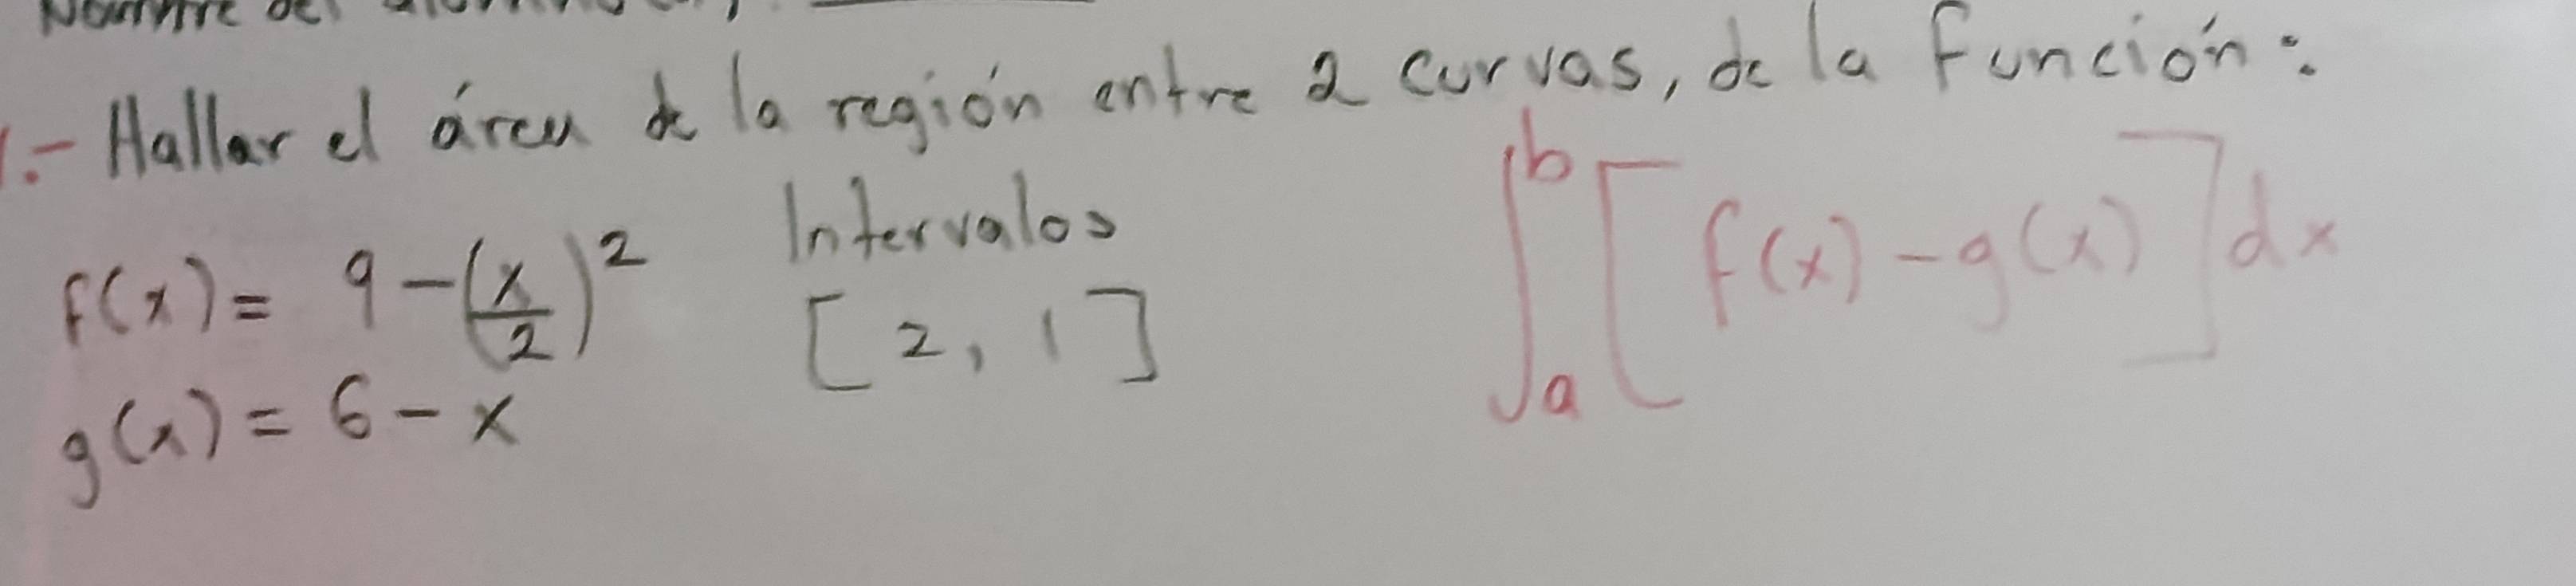 Nombre del alumno(a),
1.- Hallar el área de la región entre 2 curvas, de la función:
f(x) = 9 - (x/2)²
Intervalos
[2, 1]
g(x) = 6 - x
∫ₐᵇ [f(x) - g(x)] dx